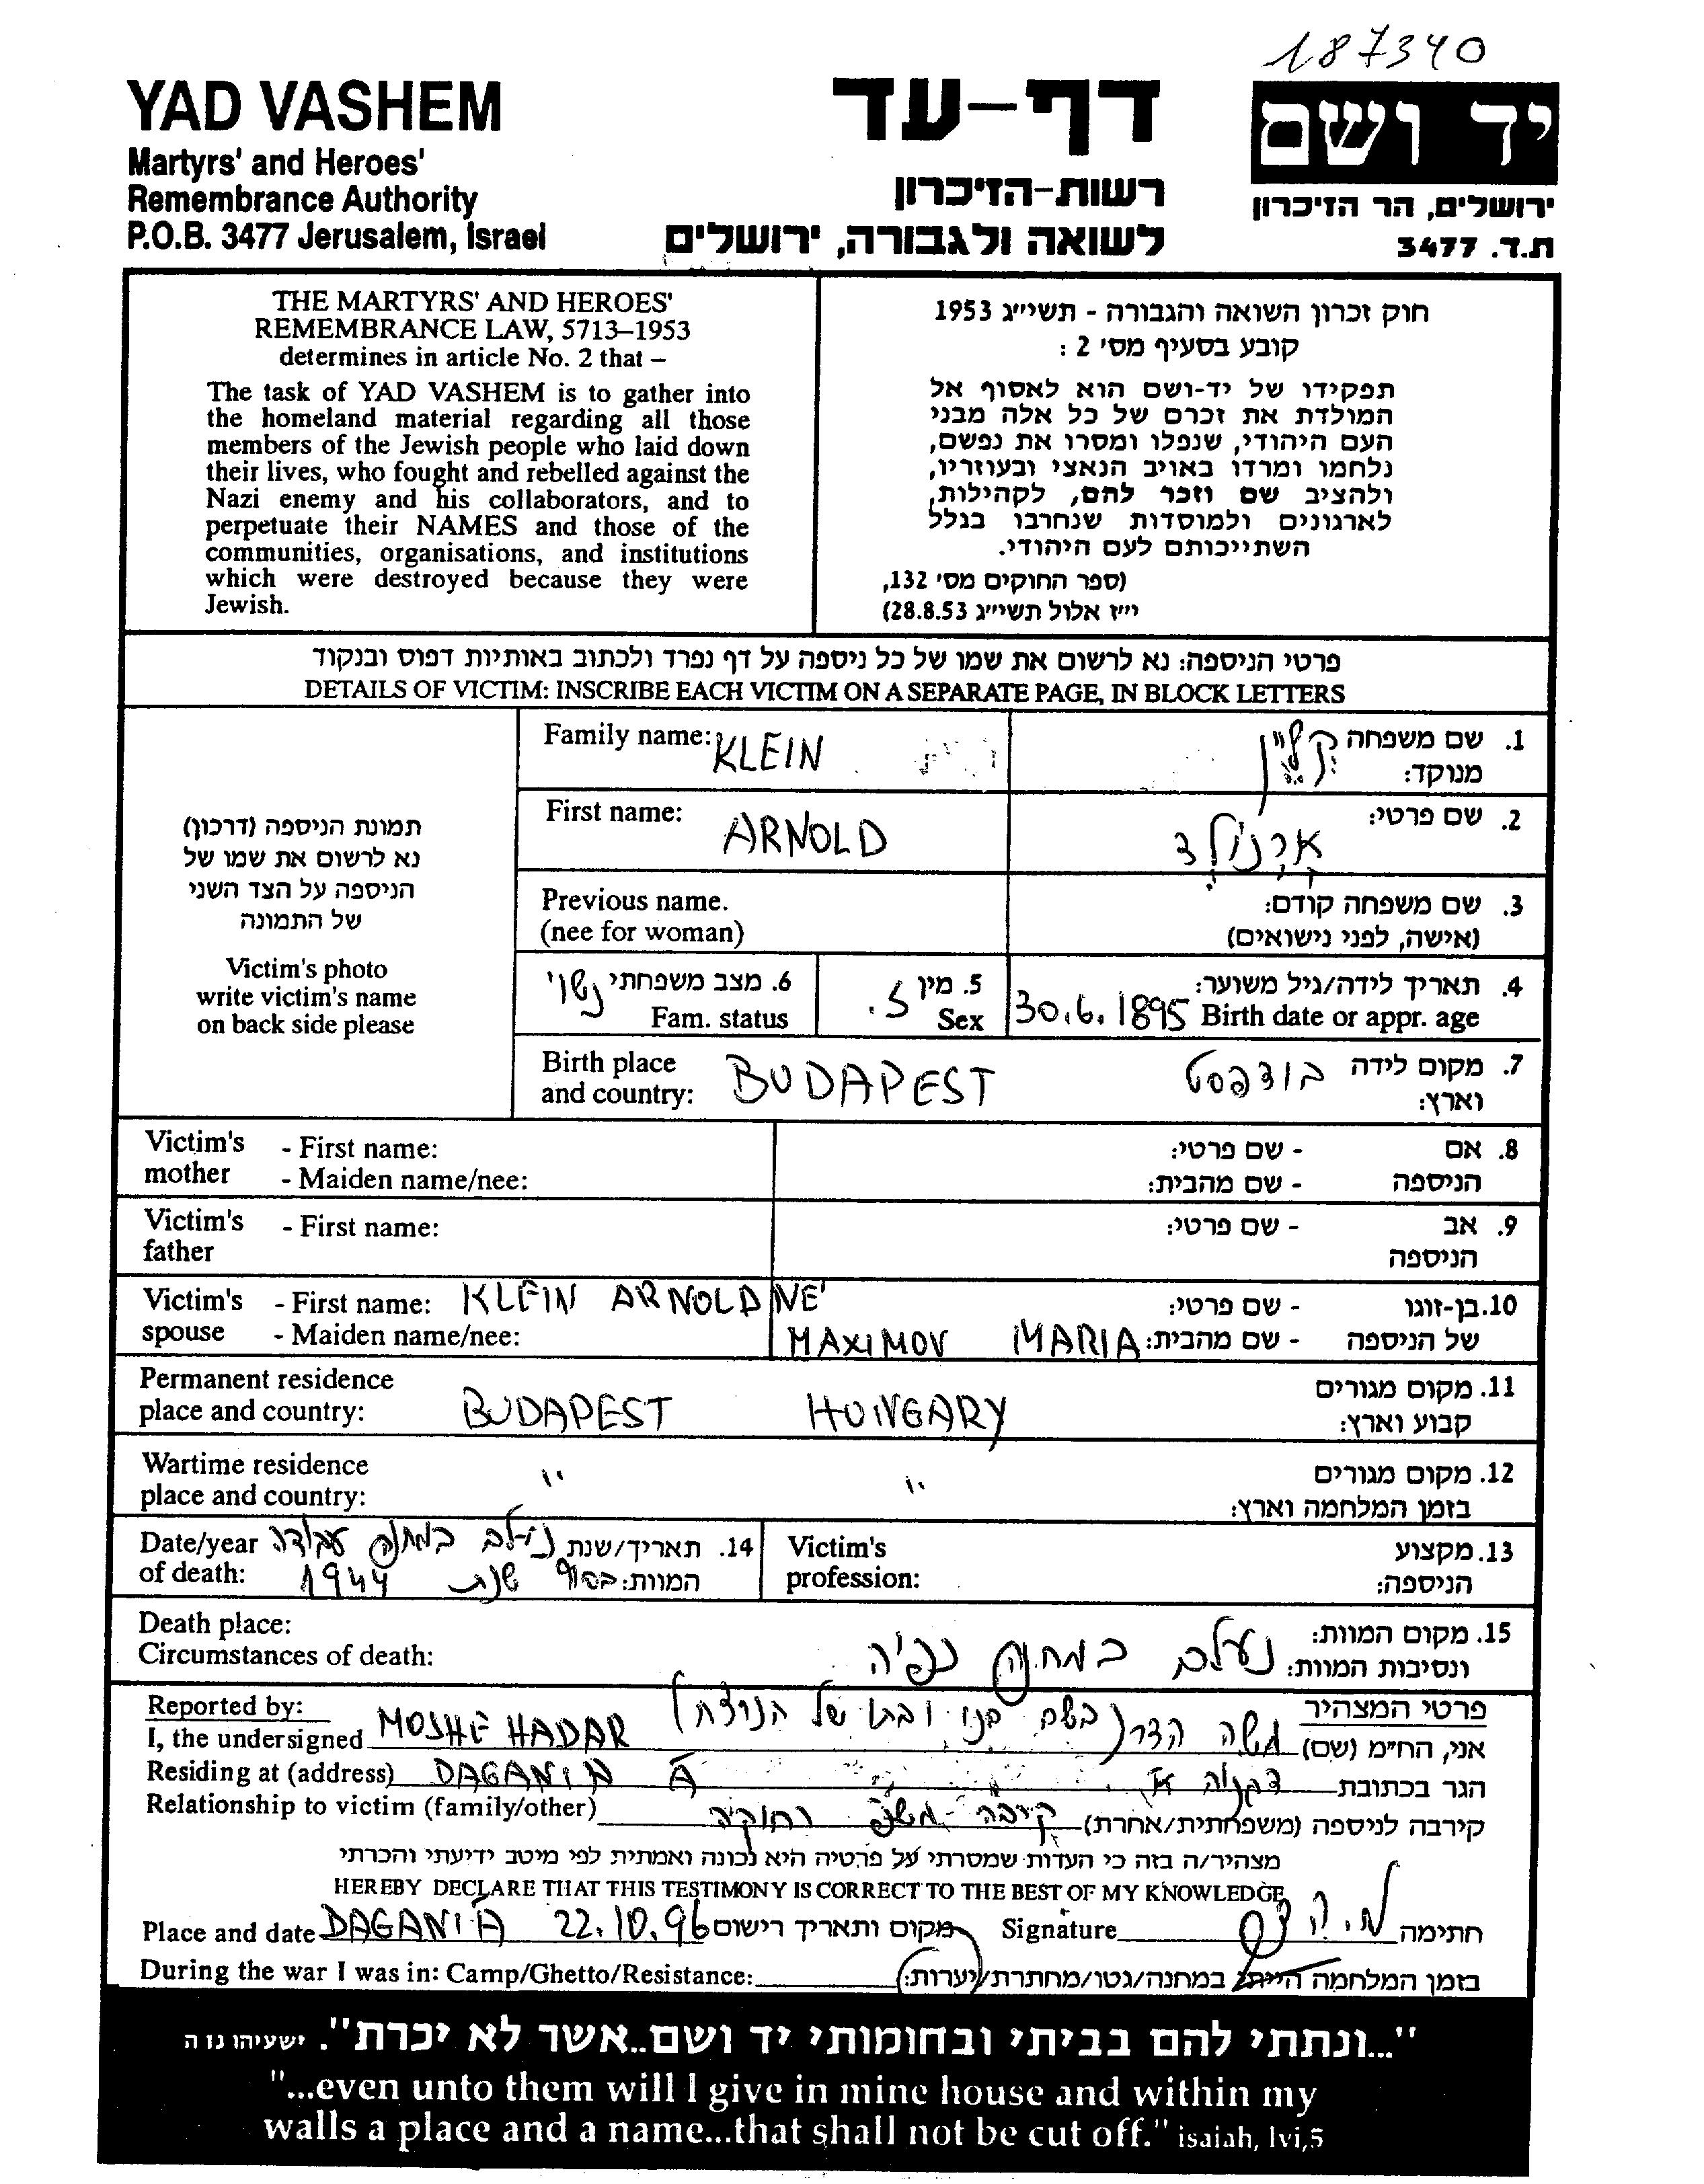 187340
YAD VASHEM
Martyrs' and Heroes'
Remembrance Authority
P.O.B. 3477 Jerusalem, Israel
דף-עד
רשות-הזיכרון
לשואה ולגבורה, ירושלים
יד ושם
ירושלים, הר הזיכרון
ת.ד. 3477
THE MARTYRS' AND HEROES'
REMEMBRANCE LAW, 5713–1953
determines in article No. 2 that –
The task of YAD VASHEM is to gather into
the homeland material regarding all those
members of the Jewish people who laid down
their lives, who fought and rebelled against the
Nazi enemy and his collaborators, and to
perpetuate their NAMES and those of the
communities, organisations, and institutions
which were destroyed because they were
Jewish.
חוק זכרון השואה והגבורה - תשי״ג 1953
קובע בסעיף מס' 2 :
תפקידו של יד-ושם הוא לאסוף אל
המולדת את זכרם של כל אלה מבני
העם היהודי, שנפלו ומסרו את נפשם,
נלחמו ומרדו באויב הנאצי ובעוזריו,
ולהציב שם וזכר להם, לקהילות,
לארגונים ולמוסדות שנחרבו בגלל
השתייכותם לעם היהודי.
(ספר החוקים מס' 132,
י״ז אלול תשי״ג 28.8.53)
פרטי הניספה: נא לרשום את שמו של כל ניספה על דף נפרד ולכתוב באותיות דפוס ובנקוד
DETAILS OF VICTIM: INSCRIBE EACH VICTIM ON A SEPARATE PAGE, IN BLOCK LETTERS
תמונת הניספה (דרכון)
נא לרשום את שמו של
הניספה על הצד השני
של התמונה
Victim's photo
write victim's name
on back side please
Family name: KLEIN
1. שם משפחה קליין
מנוקד:
First name: ARNOLD
2. שם פרטי: ארנולד
Previous name.
(nee for woman)
3. שם משפחה קודם:
(אישה, לפני נישואים)
6. מצב משפחתי נשוי
Fam. status
5. מין ז.
Sex
4. תאריך לידה/גיל משוער:
30.6.1895 Birth date or appr. age
Birth place
and country: BUDAPEST
7. מקום לידה בודפסט
וארץ:
Victim's mother - First name:
- Maiden name/nee:
8. אם הניספה - שם פרטי:
- שם מהבית:
Victim's father - First name:
9. אב הניספה - שם פרטי:
Victim's spouse - First name: KLEIN ARNOLDNÉ
- Maiden name/nee: MAXIMOV MARIA
10. בן-זוגו - שם פרטי:
של הניספה - שם מהבית:
Permanent residence
place and country: BUDAPEST HUNGARY
11. מקום מגורים
קבוע וארץ:
Wartime residence
place and country: " "
12. מקום מגורים
בזמן המלחמה וארץ:
Date/year
of death:
14. תאריך/שנת נעלם במחנה עבודה
המוות: בסוף שנת 1944
Victim's
profession:
13. מקצוע
הניספה:
Death place:
Circumstances of death:
15. מקום המוות:
ונסיבות המוות: נעלם במחנה כפיה
Reported by:
פרטי המצהיר
I, the undersigned MOSHE HADAR
אני, הח״מ (שם) משה הדר (בשם בנו ובתו של הנרצח)
Residing at (address) DAGANIA A
הגר בכתובת דגניה א'
Relationship to victim (family/other)
קירבה לניספה (משפחתית/אחרת) קירבה משפ' רחוקה
מצהיר/ה בזה כי העדות שמסרתי על פרטיה היא נכונה ואמתית לפי מיטב ידיעתי והכרתי
HEREBY DECLARE THAT THIS TESTIMONY IS CORRECT TO THE BEST OF MY KNOWLEDGE
Place and date DAGANIA 22.10.96 מקום ותאריך רישום
Signature חתימה
During the war I was in: Camp/Ghetto/Resistance:
בזמן המלחמה הייתי במחנה/גטו/מחתרת/יערות:
"...ונתתי להם בביתי ובחומותי יד ושם..אשר לא יכרת". ישעיהו נו ה
"...even unto them will I give in mine house and within my
walls a place and a name...that shall not be cut off." isaiah, lvi,5